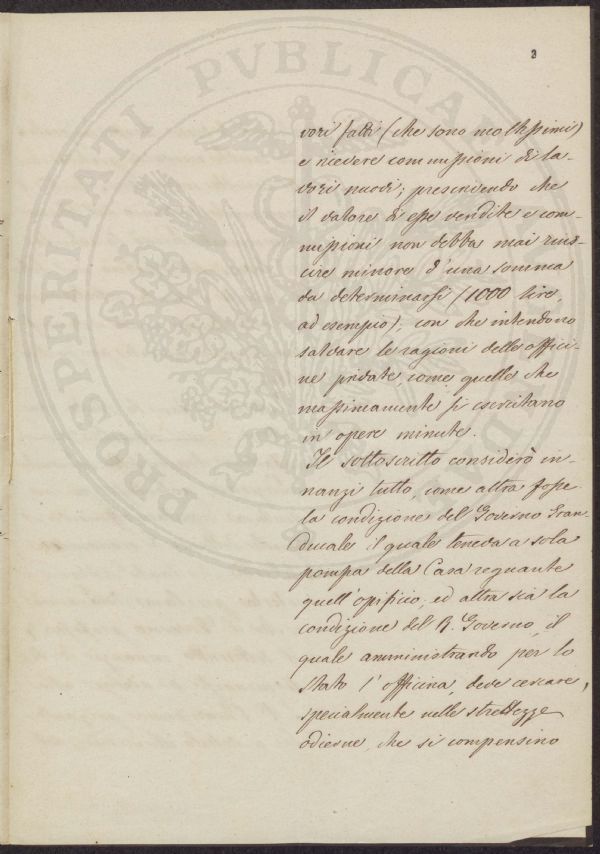 3
vori fatti (che sono moltissimi)
e ricevere commissioni di la-
vori nuovi; prescrivendo che
il valore di esse vendite e com-
missioni non debba mai rius-
cire minore d'una somma
da determinarsi (1000 lire,
ad esempio); con che intendono
salvare le ragioni delle offici-
ne private, come quelle che
massimamente si esercitano
in opere minute.
Il sottoscritto considerò in-
nanzi tutto, come altra fosse
la condizione del Governo Gran-
Ducale il quale teneva a sola
pompa della Casa regnante
quell'opificio, ed altra sia la
condizione del R. Governo, il
quale amministrando per lo
Stato l'officina, deve cercare,
specialmente nelle strettezze
odierne, che si compensino
PROSPERITATI PVBLICAE